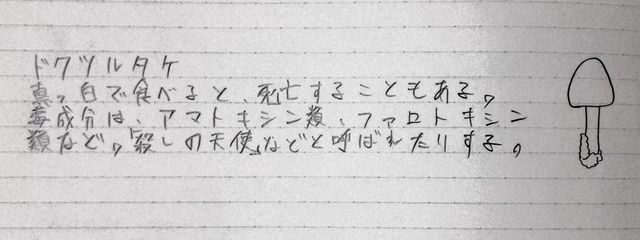 ドクツルタケ
真っ白で食べると、死亡することもある。
毒成分は、アマトキシン類、ファロトキシン
類など。「殺しの天使」などと呼ばれたりする。